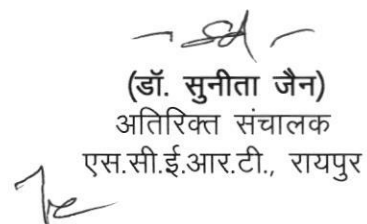 (डॉ. सुनीता जैन)
अतिरिक्त संचालक
एस.सी.ई.आर.टी., रायपुर